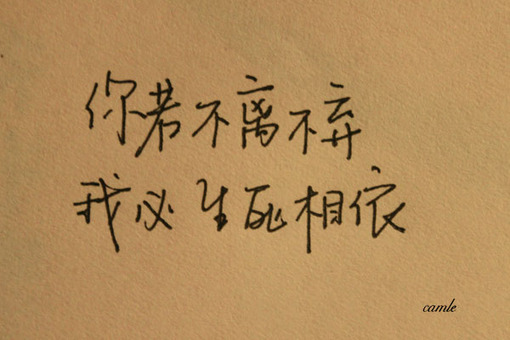 你若不离不弃
我必生死相依
camle